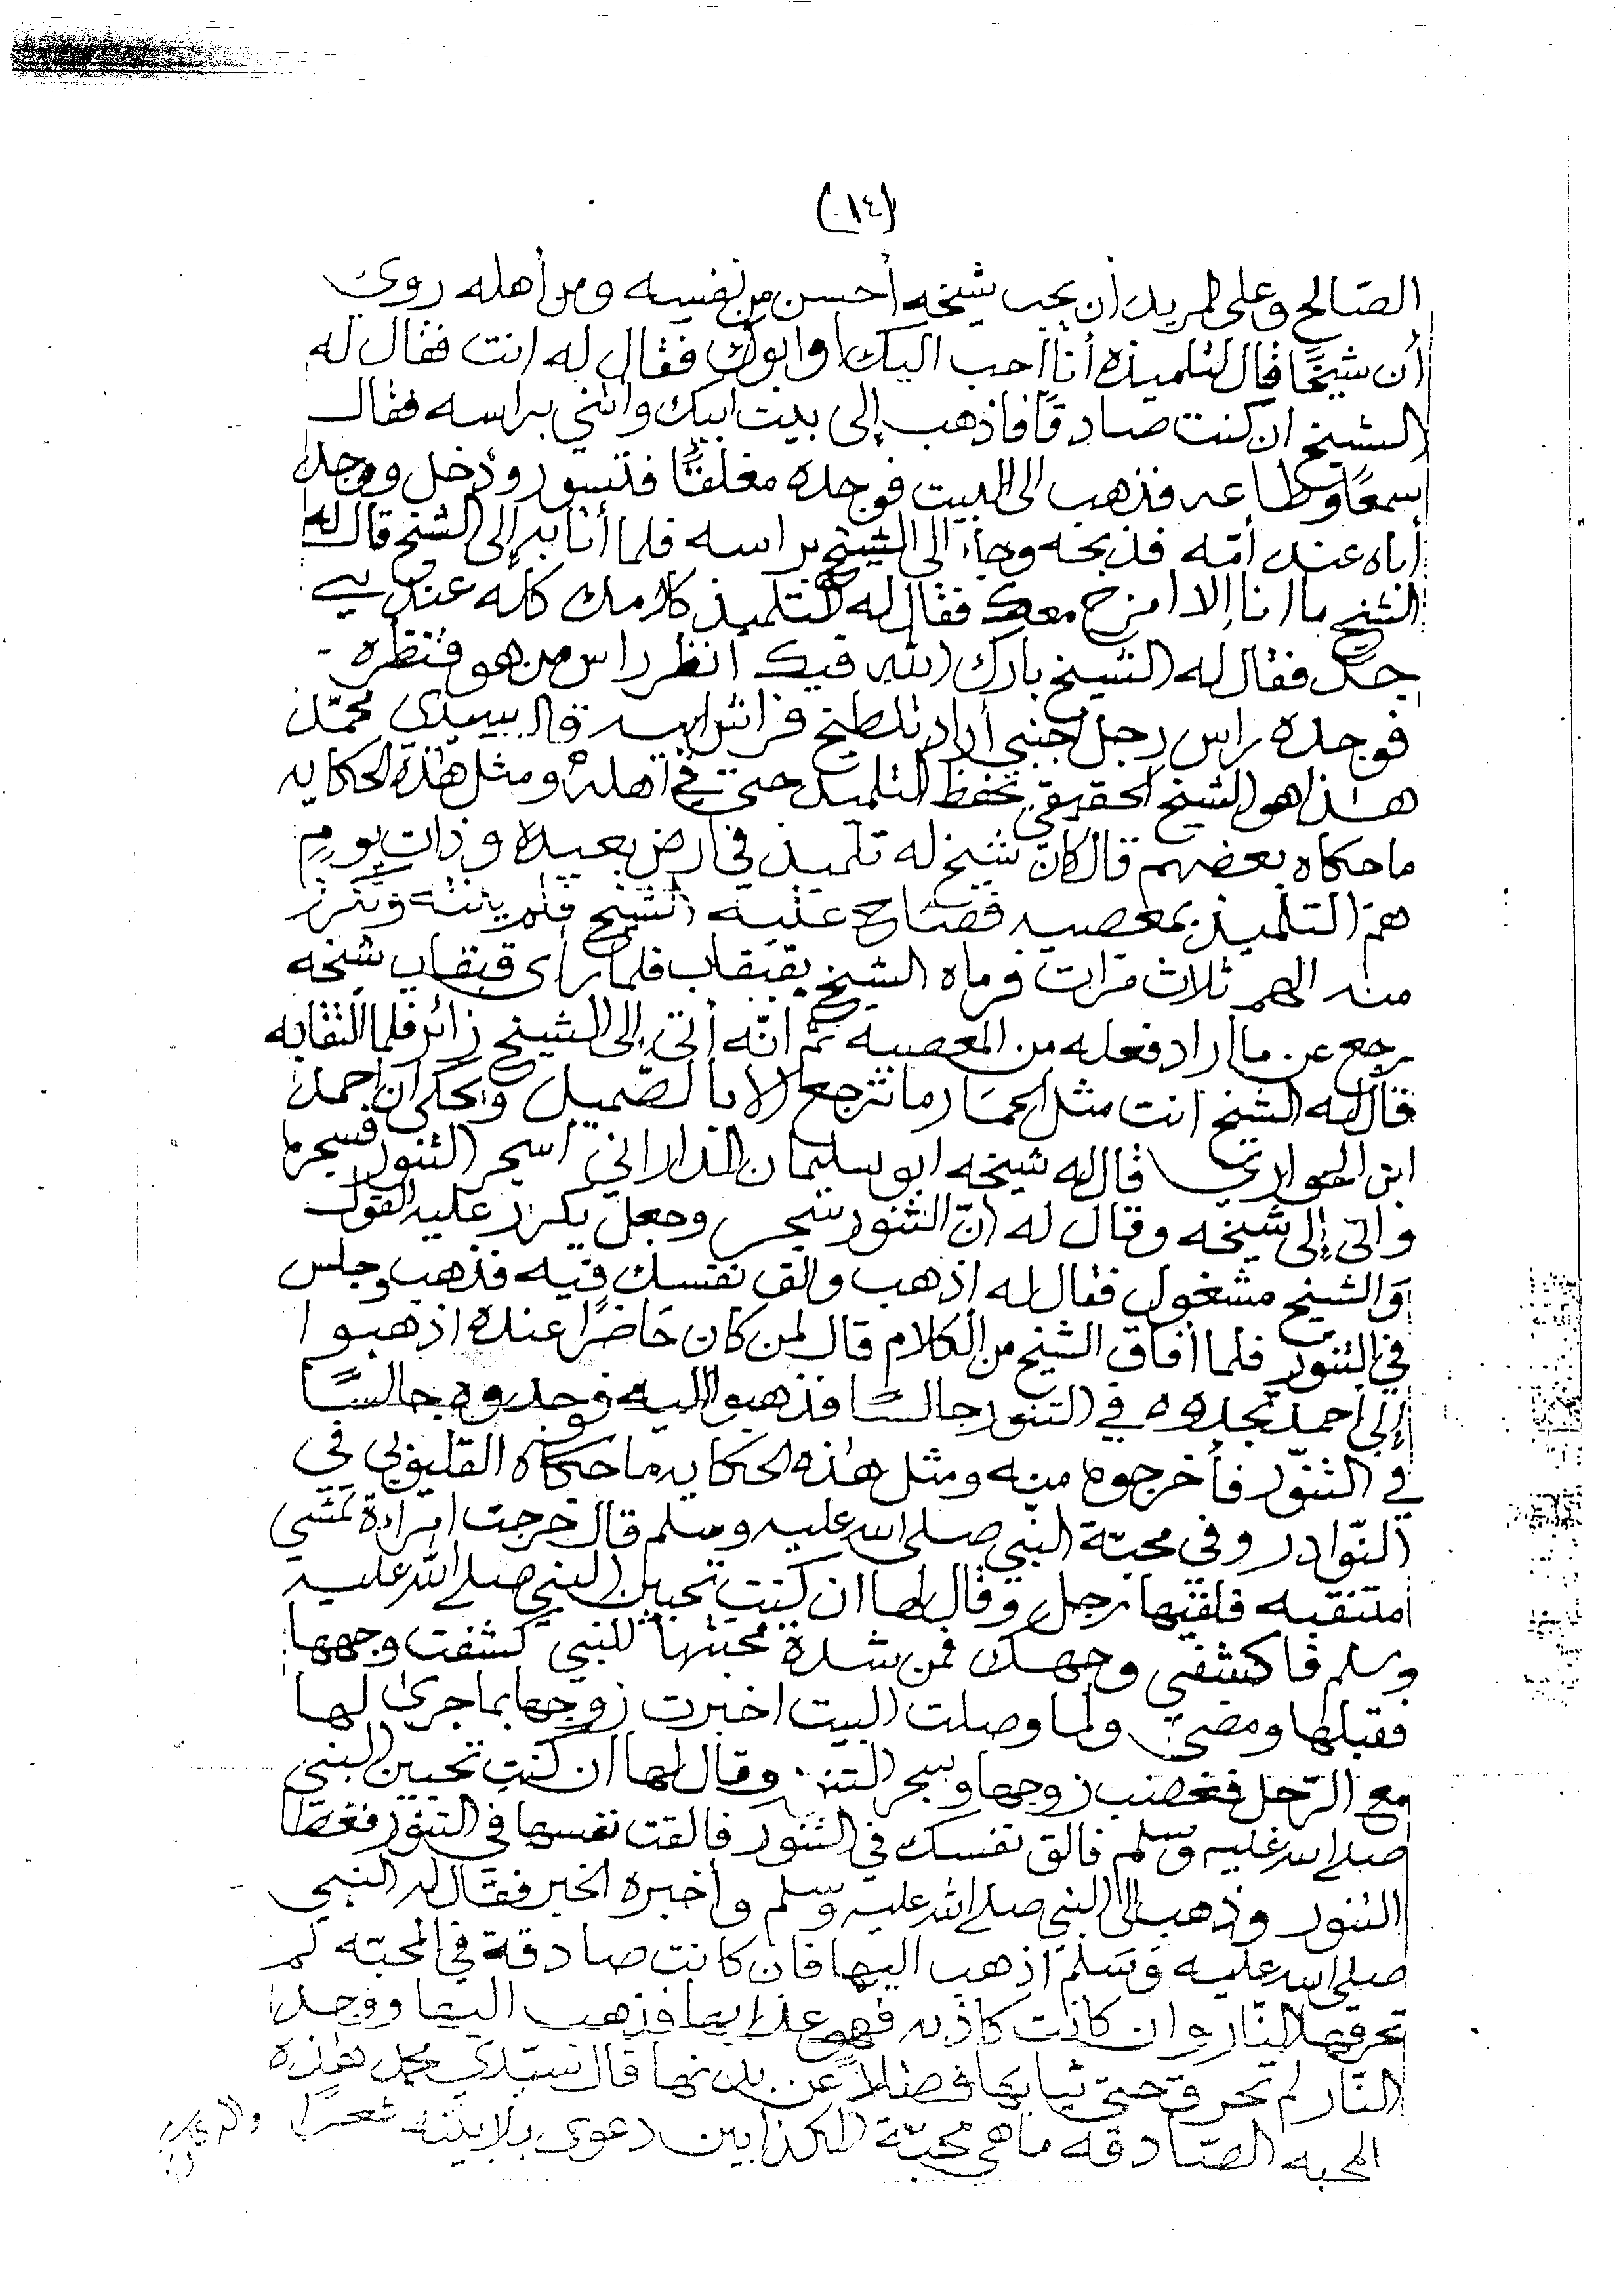 (١٤)
الصّالح وعلى المريد ان يحب شيخه أحسن من نفسه ومن أهله روي
أن شيخًا قال لتلميذه أنا احب اليك او ابوك فقال له انت فقال له
الشيخ ان كنت صادقًا فاذهب إلى بيت ابيك وائتني براسه فقال
سمعًا وطاعه فذهب الى البيت فوجده مغلقًا فتسور ودخل ووجد
أباه عند أمّه فذبحه وجاء الى الشيخ براسه فلما أتا به إلى الشيخ قال له
الشيخ ما انا إلا امزح معك فقال له التلميذ كلامك كله عندي
جد فقال له الشيخ بارك الله فيك انظر راس من هو فنظره
فوجده راس رجل اجنبي أراد تلطيخ فراش ابيه قال سيدي محمّد
هذا هو الشيخ الحقيقي يحفظ التلميذ حتى في أهله ومثل هذه الحكايه
ما حكاه بعضهم قال كان شيخ له تلميذ في ارض بعيده وذات يوم
همّ التلميذ بمعصيه فصاح عليه الشيخ فلم ينته وتكرر
منه الهم ثلاث مرّات فرماه الشيخ بقبقاب فلما رأى قبقاب شيخه
رجع عن ما اراد فعله من المعصيه ثم انّه أتى إلى الشيخ زائر فلما التقا به
قال له الشيخ انت مثل الحمار ما ترجع الا بالصّميل ويحكى ان احمد
ابن الحواري قال له شيخه ابو سليمان الداراني اسجر التنور فسجره
واتى إلى شيخه وقال له انّ التنور سجر وجعل يكرر عليه القول
والشيخ مشغول فقال له إذهب والق نفسك فيه فذهب وجلس
في التنوّر فلما أفاق الشيخ من الكلام قال لمن كان حَاضرًا عنده اذهبوا
إلى احمد تجدوه في التنور جالسًا فذهبوا اليه فوجدوه جالسًا
في التنوّر فأخرجوه منه ومثل هذه الحكايه ما حكاه القليوبي في
النّوادر وفي محبّة النبي صلى الله عليه وسلم قال خرجت امراءة تمشي
متنقبه فلقيها رجل وقال لها ان كنت تحبين النبي صلى الله عليه
وسلم فاكشفي وجهك فمن شدة محبتها للنبي كشفت وجهها
فقبلها ومضى ولما وصلت البيت اخبرت زوجها بما جرى لها
مع الرّجل فغضب زوجها وسجر التنور وقال لها ان كنت تحبين النبي
صلى الله عليه وسلم فالق نفسك في التنور فالقت نفسها في التنور فغطا
التنور وذهب الى النبي صلى الله عليه وسلم وأخبره الخبر فقال له النبي
صلى الله عليه وَسَلم اذهب اليها فان كانت صادقة في المحبّه لم
تحرقها النّار وان كانت كاذبه فهو عذابها فذهب اليها ووجد
النّار لم تحرق حتى ثيابها فضلاً عن بدنها قال سيّدي محمد هذه
المحبه الصّادقه ما هي محبّة الكذابين دعوى بلا بيّنه شعرًا